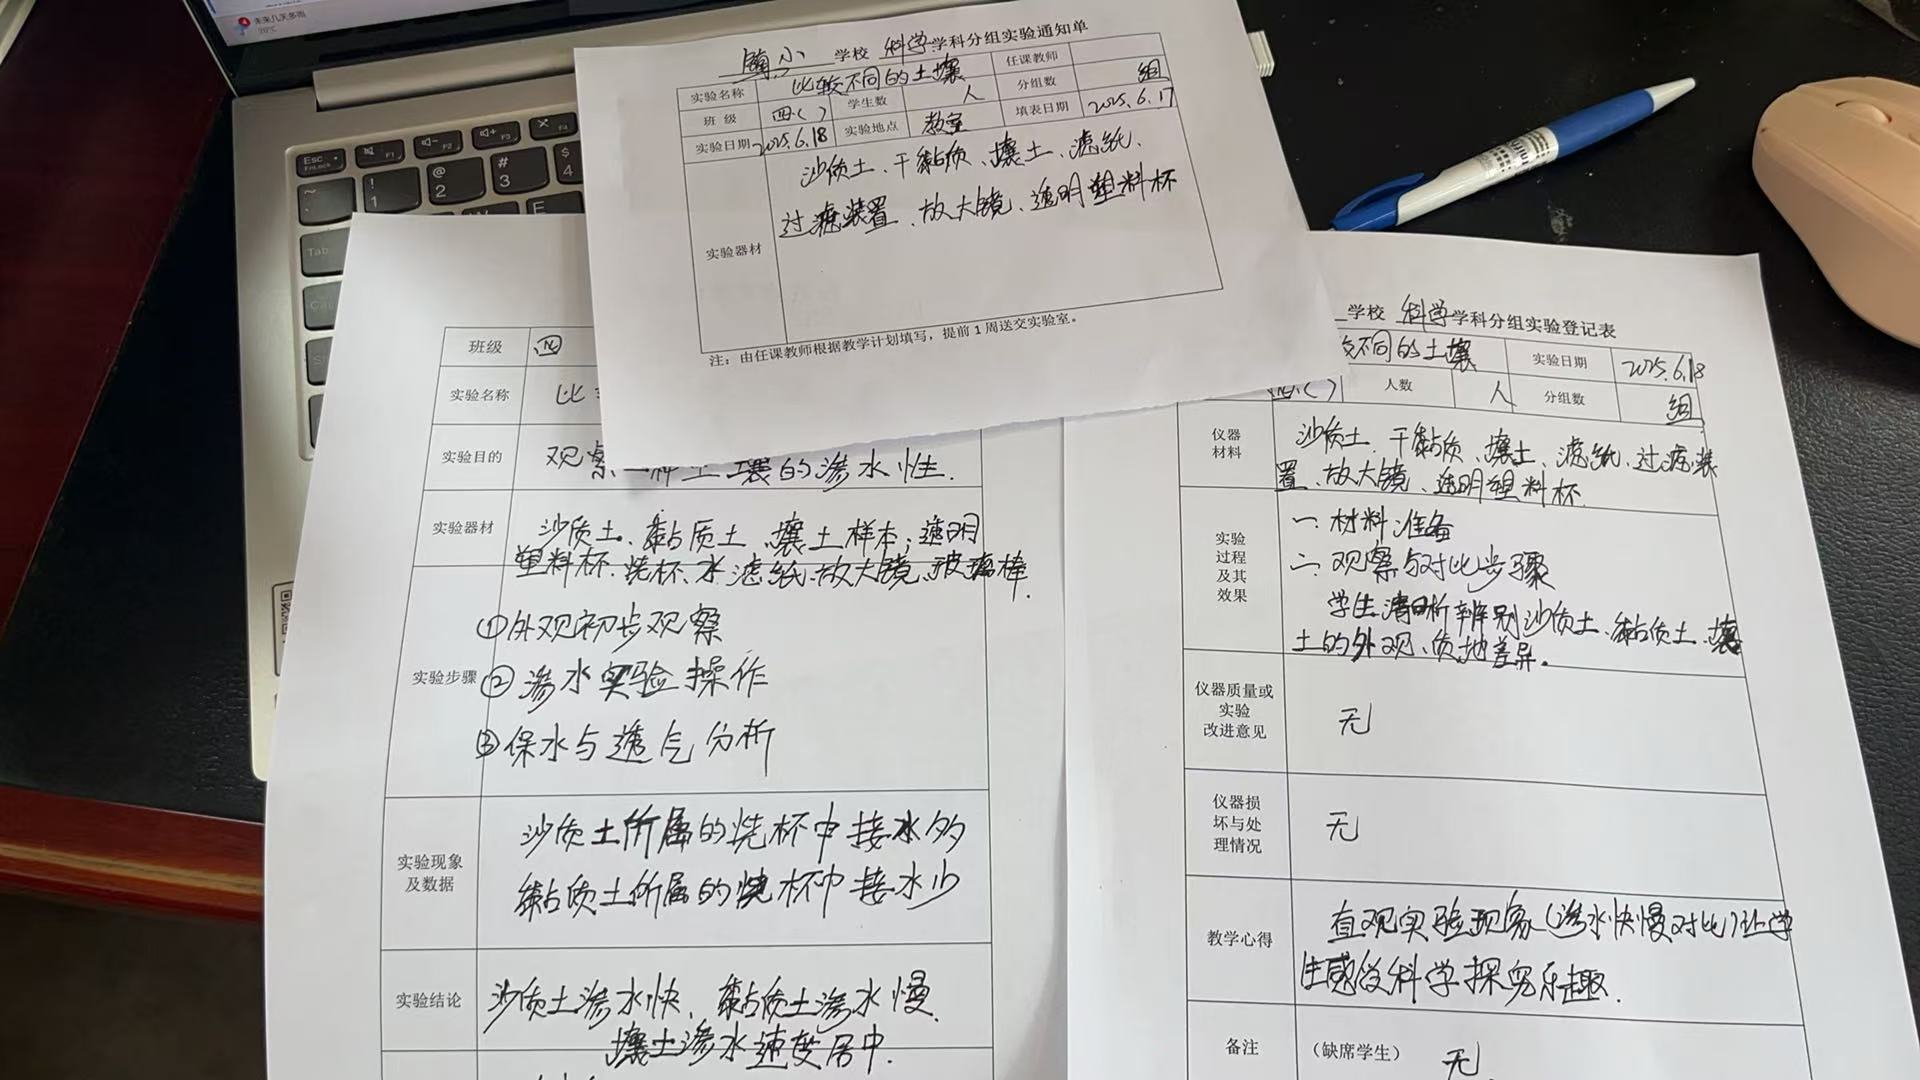 未来几天多雨
镇小 学校 科学 学科分组实验通知单
实验名称 比较不同的土壤 任课教师
班 级 四( ) 学生数 人 分组数 组
实验日期 2025.6.18 实验地点 教室 填表日期 2025.6.17
实验器材
沙质土、干黏质、壤土、滤纸、
过滤装置、放大镜、透明塑料杯
注：由任课教师根据教学计划填写，提前1周送交实验室。
Esc
FnLock
F1
F2
F3
F4
~
!
1
@
2
#
3
$
4
E
Tab
班级 四
实验名称 比
实验目的 观察 壤的渗水性.
实验器材 沙质土、黏质土、壤土样本；透明
塑料杯、烧杯、水、滤纸、放大镜、玻璃棒.
实验步骤
①外观初步观察
②渗水实验操作
③保水与透气分析
实验现象
及数据
沙质土所属的烧杯中接水多
黏质土所属的烧杯中接水少
实验结论 沙质土渗水快、黏质土渗水慢、
壤土渗水速度居中.
学校 科学 学科分组实验登记表
不同的土壤 实验日期 2025.6.18
四( ) 人数 人 分组数 组
仪器
材料
沙质土、干黏质、壤土、滤纸、过滤装
置、放大镜、透明塑料杯.
实验
过程
及其
效果
一.材料准备
二.观察与对比步骤
学生清晰辨别沙质土、黏质土、壤
土的外观、质地差异。
仪器质量或
实验
改进意见
无
仪器损
坏与处
理情况
无
教学心得
直观实验现象(渗水快慢对比)让学
生感受科学探究乐趣.
备注 （缺席学生） 无.